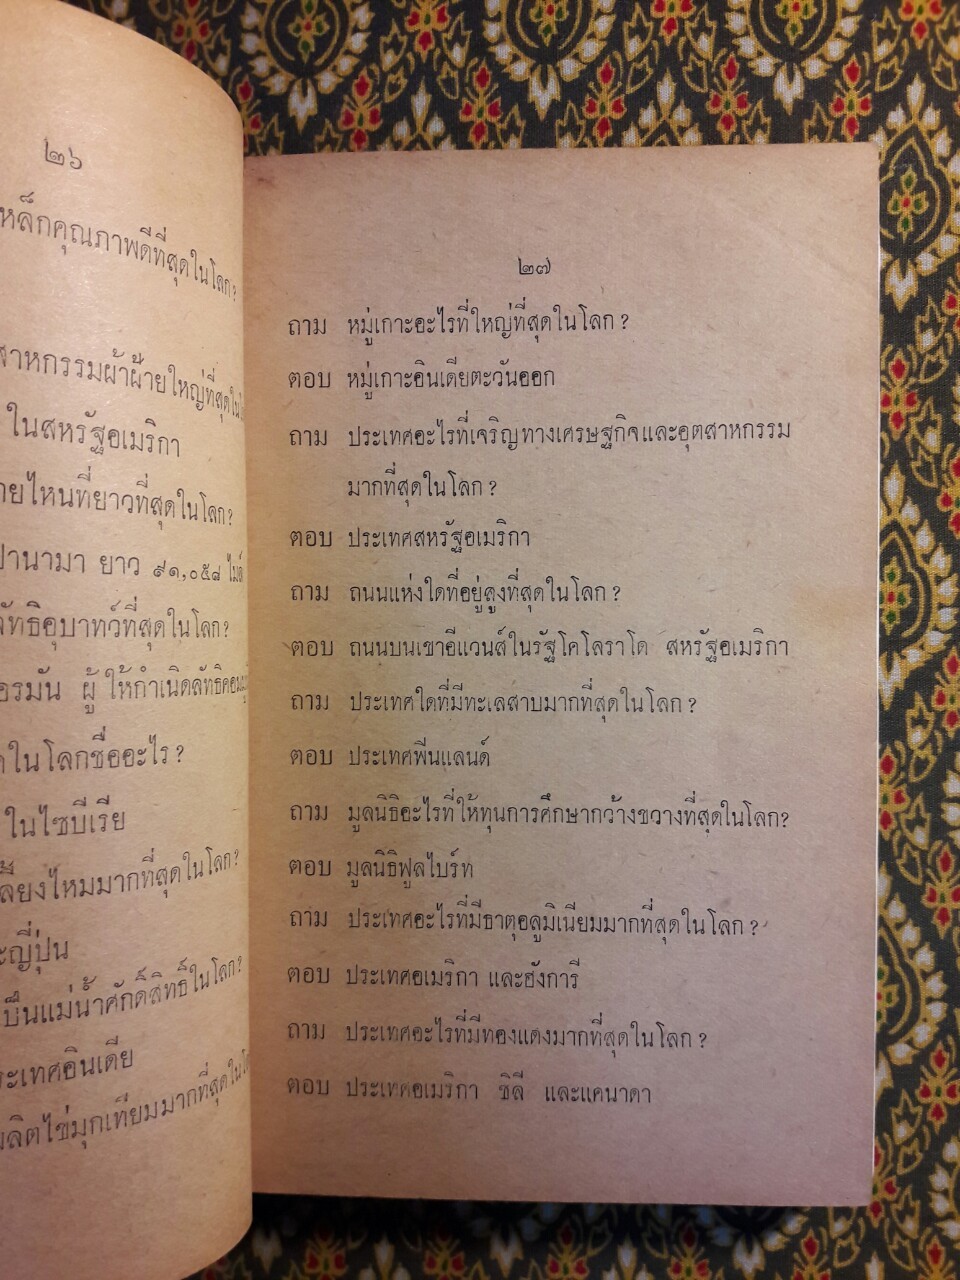 ๒๖
หล็กคุณภาพดีที่สุดในโลก?
สาหกรรมผ้าฝ้ายใหญ่ที่สุดใน
ในสหรัฐอเมริกา
ไหนที่ยาวที่สุดในโลก?
ปานามา ยาว ๙๑,๐๕๘ ไมล์
ลัทธิอุบาทว์ที่สุดในโลก?
อรมัน ผู้ให้กำเนิดลัทธิคอมมู
ในโลกชื่ออะไร?
ในไซบีเรีย
ลี้ยงไหมมากที่สุดในโลก?
ญี่ปุ่น
เป็นแม่น้ำศักดิ์สิทธิ์ในโลก?
ระเทศอินเดีย
ผลิตไข่มุกเทียมมากที่สุดในโล
๒๗
ถาม หมู่เกาะอะไรที่ใหญ่ที่สุดในโลก?
ตอบ หมู่เกาะอินเดียตะวันออก
ถาม ประเทศอะไรที่เจริญทางเศรษฐกิจและอุตสาหกรรม
มากที่สุดในโลก?
ตอบ ประเทศสหรัฐอเมริกา
ถาม ถนนแห่งใดที่อยู่สูงที่สุดในโลก?
ตอบ ถนนบนเขาอีแวนส์ในรัฐโคโลราโด สหรัฐอเมริกา
ถาม ประเทศใดที่มีทะเลสาบมากที่สุดในโลก?
ตอบ ประเทศฟินแลนด์
ถาม มูลนิธิอะไรที่ให้ทุนการศึกษากว้างขวางที่สุดในโลก?
ตอบ มูลนิธิฟูลไบร์ท
ถาม ประเทศอะไรที่มีธาตุอลูมิเนียมมากที่สุดในโลก?
ตอบ ประเทศอเมริกา และฮังการี
ถาม ประเทศอะไรที่มีทองแดงมากที่สุดในโลก?
ตอบ ประเทศอเมริกา ชิลี และแคนาดา